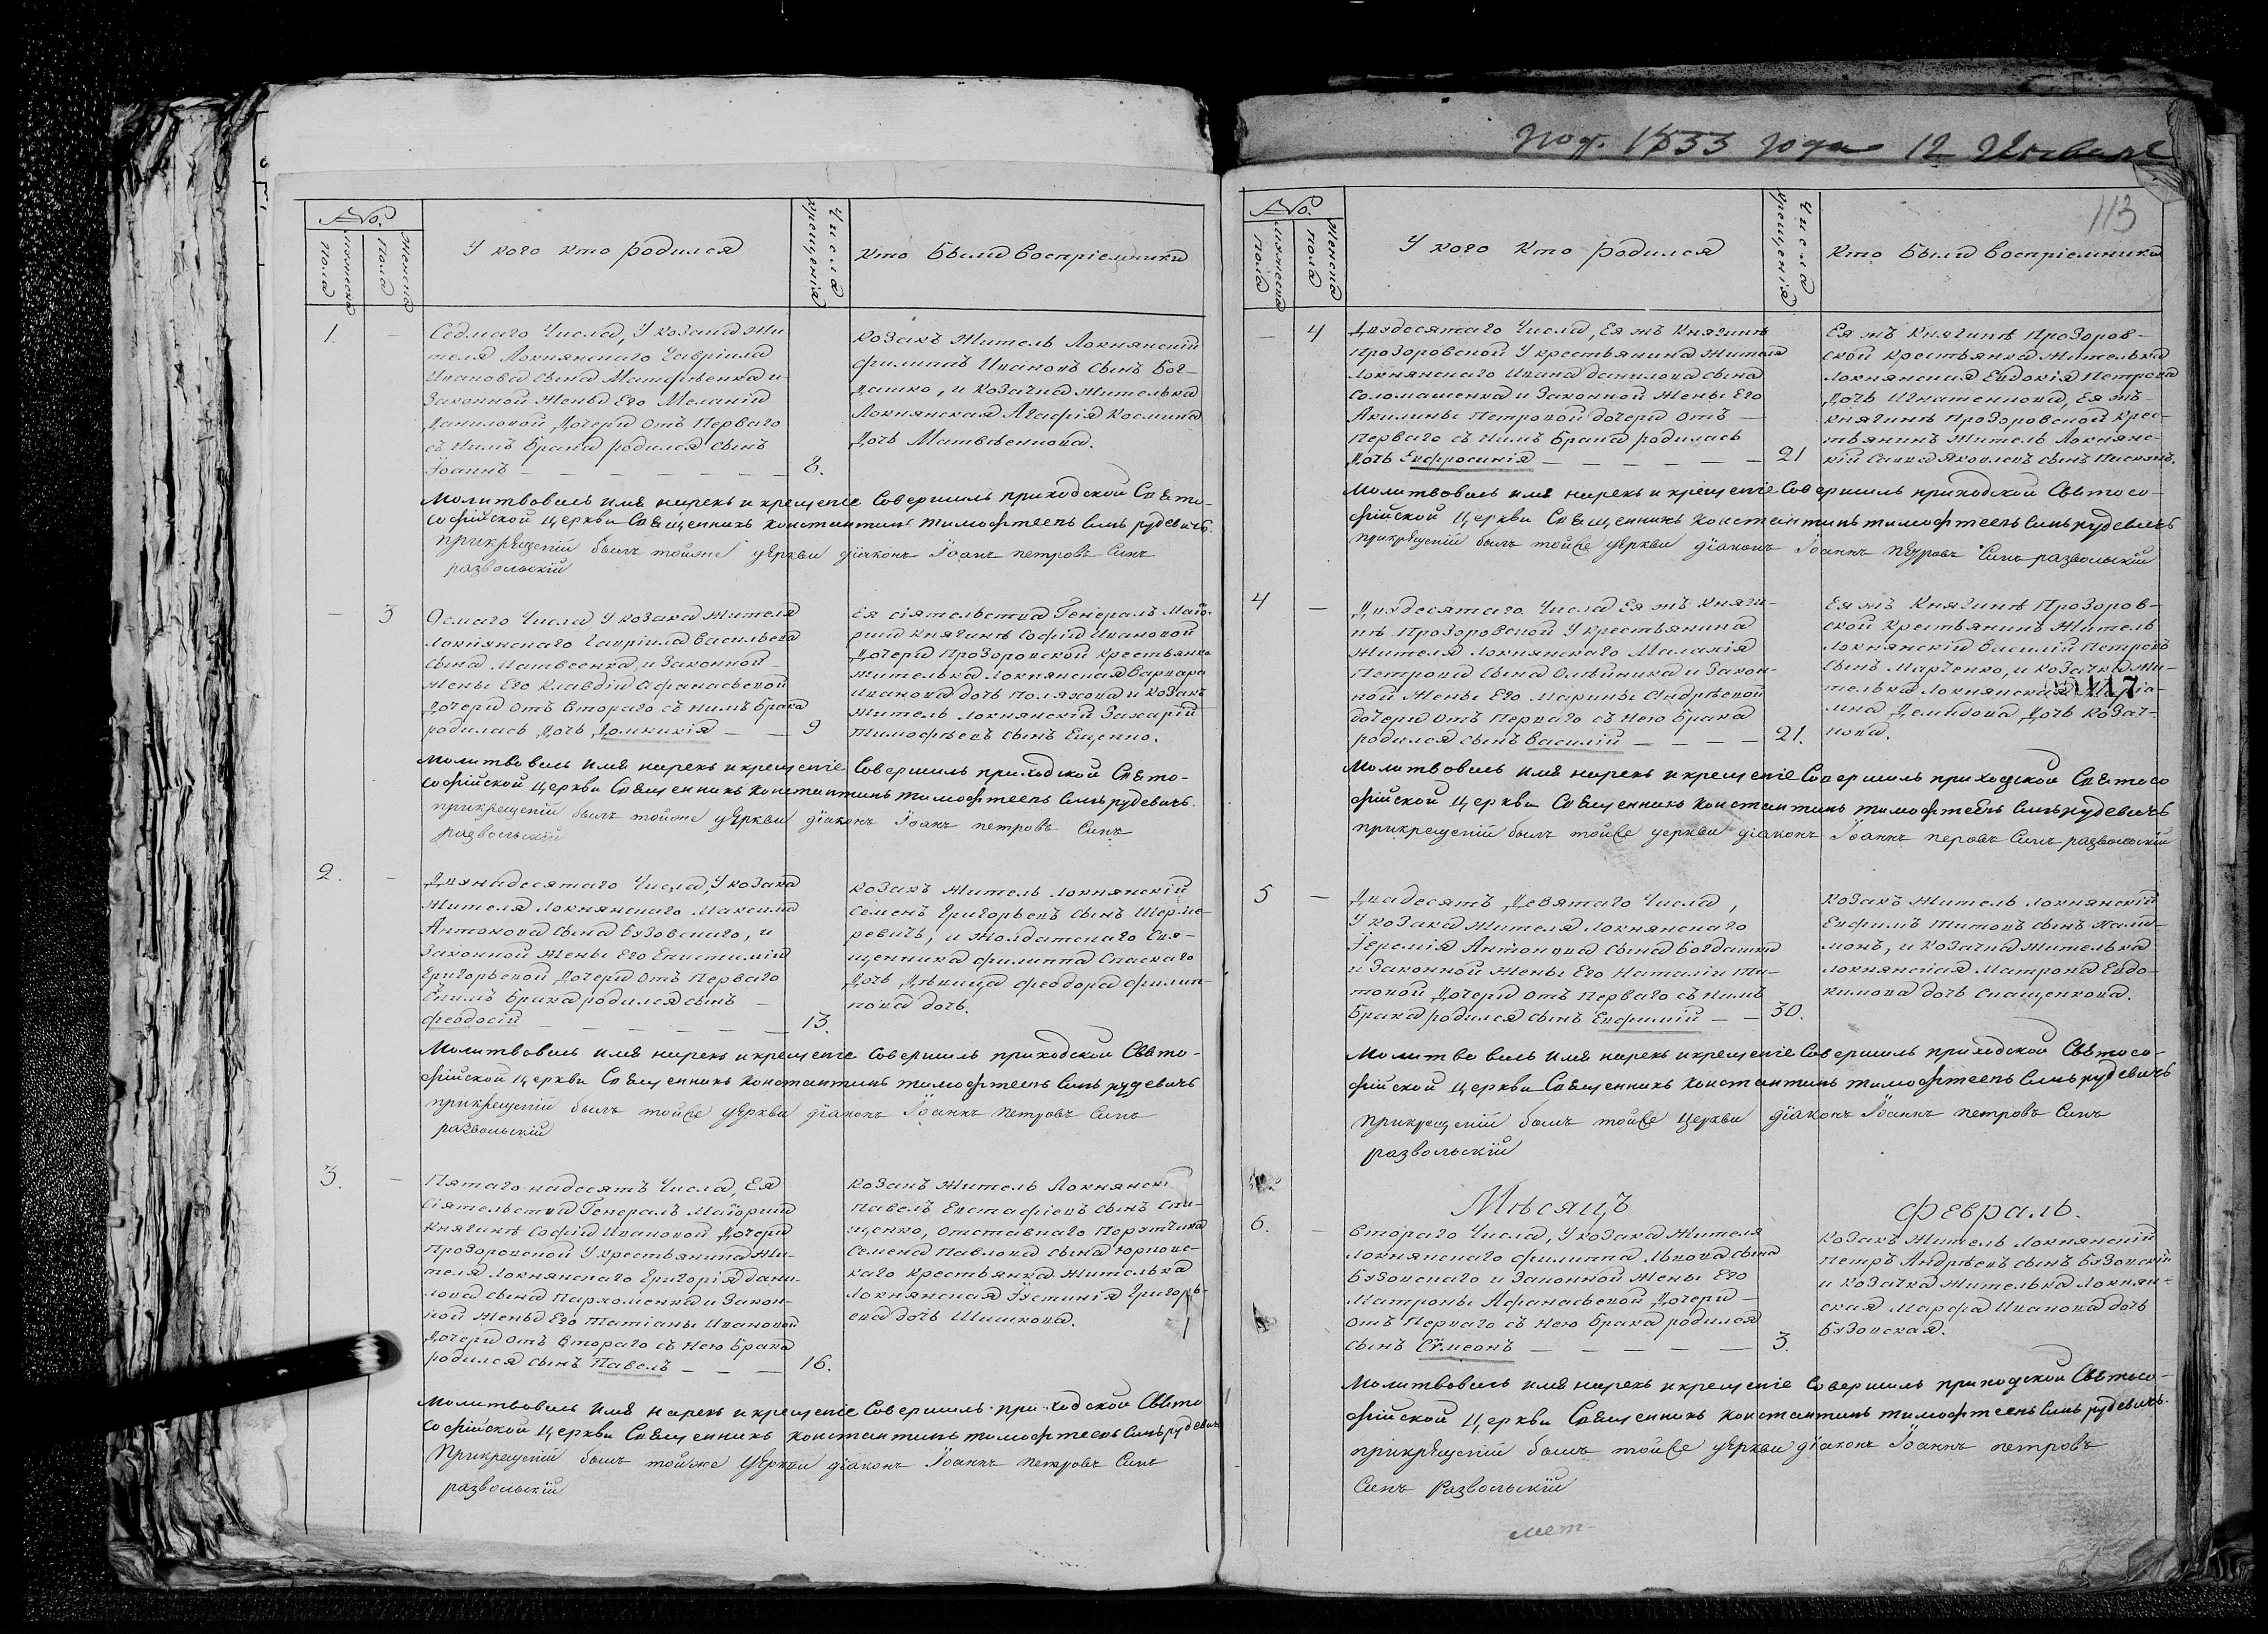 №.
мужеска пола
женска пола
У кого кто родился
Числа крещенія
Кто были воспріемники
1. –
Седмаго числа, у козака жи-
теля Локнянскаго Гавріила
Иванова сына Матфѣенка и
законной жены его Меланіи
Даниловой дочери отъ перваго
съ нимъ брака родился сынъ
Іоаннъ – – – – – – 8.
козакъ житель Локнянскій
Филиппъ Ивановъ сынъ Бог-
дашко, и козачка жителька
Локнянская Агафія Космина
дочь Матвѣенкова.
Молитвовалъ имя нарекъ и крещеніе совершилъ приходской Свѣто-
софійской церкви Священникъ Константинъ Тимофтеевъ синъ рудевичъ
прикрещеніи былъ тойже церкви діяконъ Іоанъ петровъ Синъ
развольскій
– 3
Осмаго числа у козака жителя
Локнянскаго Гавріила Васильева
сына Матвеенка, и законной
жены его Клавдіи Афанасьевой
дочери отъ втораго съ нимъ брака
родилась дочь Домникія – – 9
Ея сіятельства Генералъ Маіо-
рши Княгинѣ Софіи Ивановой
дочери Прозоровской крестьянка
жителька Локнянская Варвара
Иванова дочь Поляхова и козакъ
житель Локнянскій Захарій
Тимофѣевъ сынъ Ещенко.
Молитвовалъ имя нарекъ и крещеніе совершилъ приходской Свѣто-
софійской церкви Священникъ Константинъ Тимофтеевъ синъ рудевичъ.
прикрещеніи былъ тойже церкви діяконъ Іоанъ петровъ Синъ
развольскій
2. –
Двунадесятаго числа, у козака
жителя Локнянскаго Максима
Антонова сына Бузовскаго, и
законной жены его Епистиміи
Григорьевой дочери отъ перваго
снимъ брака родился сынъ –
Феодосій – – – – – – 13.
козакъ житель Локнянскій
Семенъ Григорьевъ сынъ Шерме-
ревичъ, и Жолдатскаго Свя-
щенника Филиппа Спаскаго
дочь дѣвица Феодора Филип-
пова дочь.
Молитвовалъ имя нарекъ и крещеніе совершилъ приходской Свѣто-
софійской церкви Священникъ Константинъ Тимофтеевъ синъ рудевичъ
прикрещеніи былъ тойже церкви діяконъ Іоаннъ петровъ Синъ
развольскій
3. –
Пятаго надесять числа, Ея
Сіятельства Генералъ Маіорши
Княгинѣ Софіи Ивановой дочери
Прозоровской у крестьянина жи-
теля Локнянскаго Григорія Дани-
лова сына Пархоменка и закон-
ной жены его Татіаны Ивановой
дочери отъ втораго съ нею брака
родился сынъ Павелъ – – – 16.
козакъ житель Локнянскі
Павелъ Евстафіевъ сынъ Спи-
щенко, отставнаго Поручика
Семена Павлова сына Юрковс-
каго крестьянка жителька
Локнянская Іустинія Григорь-
ева дочь Шишкова.
Молитвовалъ имя нарекъ и крещеніе совершилъ приходской Свѣто
софійской церкви Священникъ Константинъ Тимофтеевъ синъ рудевичъ
Прикрещеніи былъ тойже церкви діяконъ Іоаннъ петровъ Синъ
развольскій
под. 1833 года 12 Января
113
№.
мужеска пола
женска пола
У кого кто родился
Числа крещенія
Кто были воспріемники
– 4
Двудесятаго числа, Ея жъ Княгинѣ
Прозоровской у крестьянина жителя
Локнянскаго Ивана Данилова сына
Соломашенка и законной жены его
Акилины Петровой дочери отъ –
перваго съ нимъ брака родилась
дочь Евфросинія – – – – – – 21
Ея жъ Княгинѣ Прозоров-
ской крестьянка жителька
Локнянская Евдокія Петрова
дочь Игнатенкова, Ея жъ-
Княгинѣ Прозоровской крес-
тьянинъ житель Локнянс-
кій Савва Яковлевъ сынъ Пискунъ.
Молитвовалъ имя нарекъ и крещеніе совершилъ приходской Свѣтосо-
фійской церкви Священникъ Константинъ Тимофтеевъ синъ рудевичъ
прикрещеніи былъ тойже церкви діяконъ Іоаннъ петровъ Синъ развольскій
4 –
Двудесятаго числа Ея жъ Княги-
нѣ Прозоровской у крестьянина
жителя Локнянскаго Малахія
Петрова сына Олѣйника и закон-
ной жены его Марины Андрѣевой
дочери отъ перваго съ нею брака
родился сынъ Василій – – – – 21.
Ея жъ Княгинѣ Прозоров-
ской крестьянинъ житель
Локнянскій Василій Петровъ
сынъ Марченко, и козачка жи-
телька Локнянская Маріа-
мна Демидова дочь Козач-
кова.
Молитвовалъ имя нарекъ и крещеніе совершилъ приходской Свѣтосо
фійской церкви Священникъ Константинъ Тимофтеевъ синъ рудевичъ
прикрещеніи былъ тойже церкви діяконъ Іоаннъ перовъ Синъ развольскій
5 –
Двадесять девятаго числа,
у козака жителя Локнянскаго
Іеремія Антонова сына Богдашки
и законной жены его Наталіи Ти-
товой дочери отъ перваго съ нимъ
брака родился сынъ Евфимій – – 30.
козакъ житель Локнянскій
Евфимъ Титовъ сынъ Хали-
монъ, и козачка жителька
Локнянская Матрона Евдо-
кимова дочь Спащенкова.
Молитвовалъ имя нарекъ и крещеніе совершилъ приходской Свѣтосо-
фійской церкви Священникъ Константинъ Тимофтеевъ синъ рудевичъ
прикрещеніи былъ тойже церкви діяконъ Іоаннъ петровъ Синъ
развольскій
Мѣсяцъ Февраль.
6. –
Втораго числа, у козака жителя
Локнянскаго Филиппа Львова сына
Бузовскаго и законной жены его
Матроны Афанасьевой дочери –
отъ перваго съ нею брака родился
сынъ Сѵмеонъ – – – – – 3.
козакъ житель Локнянскій
Петръ Андрѣевъ сынъ Бузовскій
и козачка жителька Локнян-
ская Марфа Иванова дочь
Бузовская.
Молитвовалъ имя нарекъ и крещеніе совершилъ приходской Свѣтосо-
фійской церкви Священникъ Константинъ Тимофтеевъ синъ рудевичъ.
прикрещеніи былъ тойже церкви діяконъ Іоаннъ петровъ
Синъ Развольскій
мет-